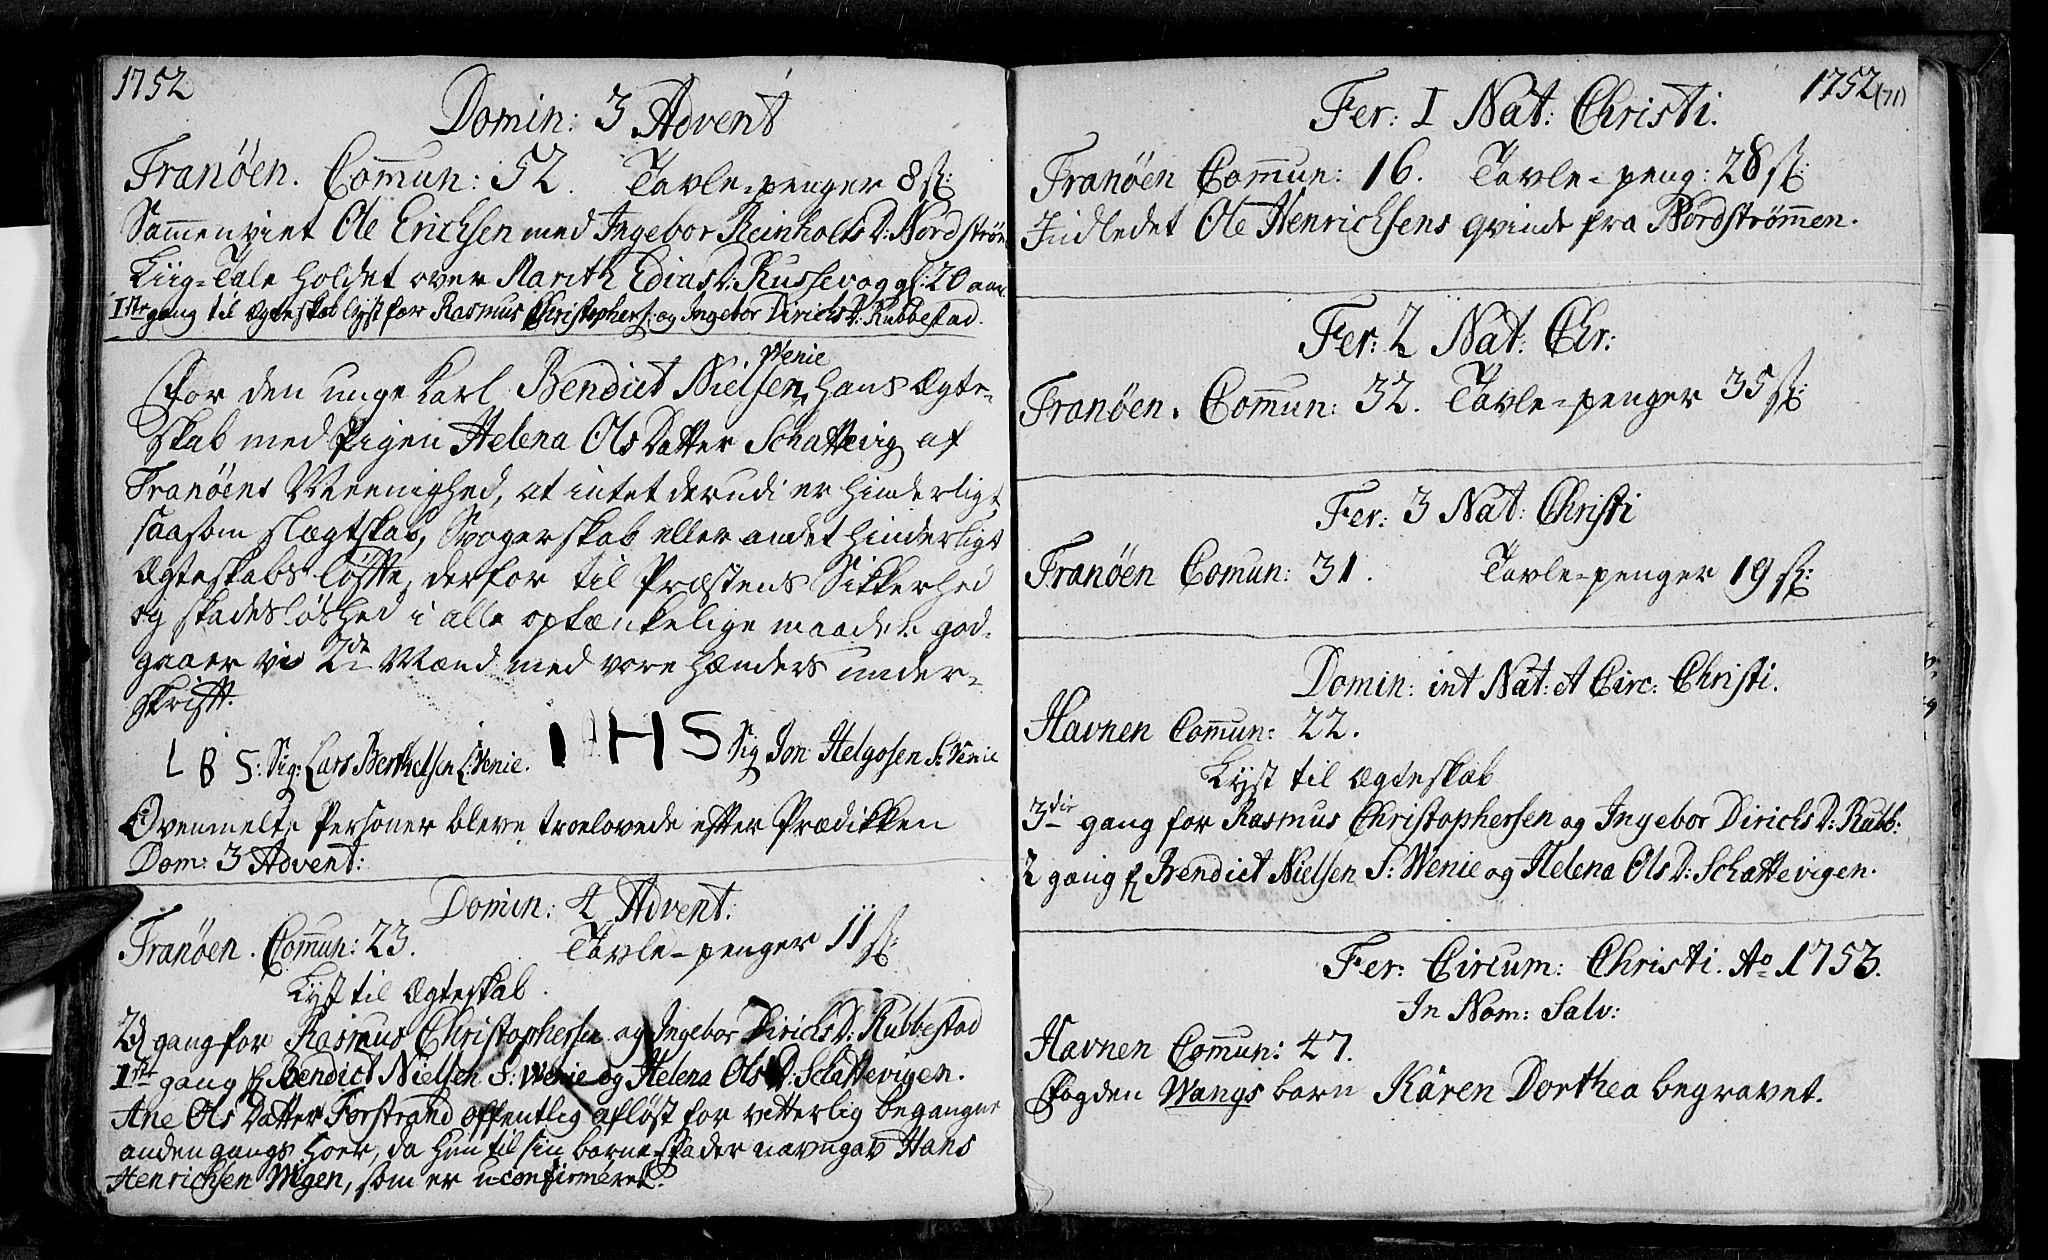 1752
Domin: 3 Advent
Tranöen. Com̄un: 52. Tavle-penger 8 sk:
Sammenviet Ole Erichsen med Ingebor ReinholtsD: Nordström
Liig-Tale holdet over Marith EdiasD: Russevog gl: 20 aar
1ste gang til Ægteskab lyst for Rasmus Christophers: og Ingebor DirichsD: Rubbestad.
For den unge Karl Bendict Nielsen Wenie, hans Ægte-
skab med Pigen Helena Ols Datter Schattevig af
Tranöens Meenighed, at intet derudi er hinderligt
saasom slægtskab, Svogerskab eller andet hinderligt
Ægteskabs löffte, derfor til Præstens Sikkerhed
og skadeslöshed i alle optænkelige maader god-
gaaer vi 2de Mænd med vore hænders under-
skrifft.
L B S: Sig: Lars Berthelsen L: Wenie. I H S Sig Jon Helgosen S: Wenie
Ovenmelte Personer bleve troelovede efter Prædikken
Dom: 3 Advent:
Domin: 4 Advent:
Tranöen. Com̄un: 23. Tavle-penger 11 sk:
Lyst til Ægteskab.
2d gang for Rasmus Christophersen og Ingebor DirichsD: Rubbestad
1ste gang f Bendict Nielsen S: Wenie og Helena OlsD: Schattevigen.
Ane Ols Datter Forstrand offentlig aflöst for vitterlig begangne
anden gangs hoer, da hun til sin barne-Fader navngav Hans
Henrichsen Wigen, som er uconfirmeret.
1752 (71)
Fer: I Nat: Christi.
Tranöen Com̄un: 16. Tavle-peng: 28 sk:
Indledet Ole Henrichsens qvinde fra Nordströmmen.
Fer: 2 Nat: Chr:
Tranöen. Com̄un: 32. Tavle-penger 35 sk:
Fer: 3 Nat: Christi
Tranöen Comun: 31. Tavle-penger 19 sk:
Domin: int Nat: et Circ: Christi.
Havnen Com̄un: 22.
Lyst til Ægteskab
3die gang for Rasmus Christophersen og Ingebor DirichsD: Rubb:
2 gang f Bendict Nielsen S: Wenie og Helena OlsD: Schattevigen.
Fer: Circum: Christi. Ao 1753.
In Nom: Salv:
Havnen Com̄un: 47.
Fogden Wangs barn Karen Dorthea begravet.